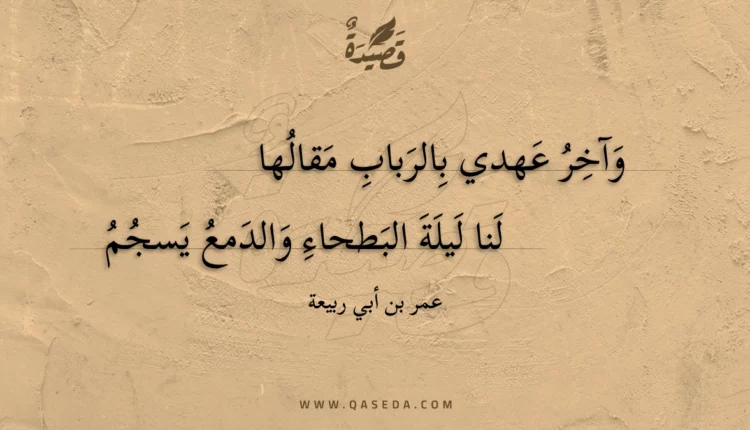 قَصِيدَةٌ
وَآخِرُ عَهدي بِالرَبابِ مَقالُها
لَنا لَيلَةَ البَطحاءِ وَالدَمعُ يَسجُمُ
عمر بن أبي ربيعة
WWW.QASEDA.COM